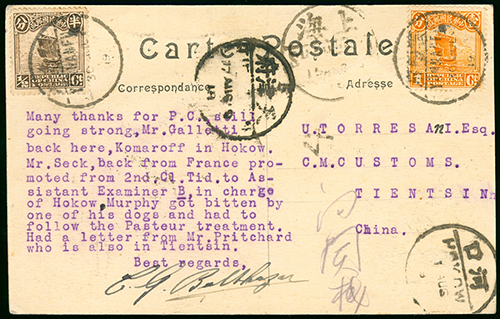 Carte Postale
Correspondance
Adresse
Many thanks for P.C. still
going strong, Mr. Galletti
back here, Komaroff in Hokow.
Mr. Seck, back from France pro-
moted from 2nd.Cl.Tid.to As-
sistant Examiner B, in charge
of Hokow, Murphy got bitten by
one of his dogs and had to
follow the Pasteur treatment.
Had a letter from Mr.Pritchard
who is also in Tientsin.
Best regards,
U.TORRESANI.Esq.
C.M.CUSTOMS.
TIENTSIN
China.
REPUBLIC
OF CHINA
REPUBLIC
OF CHINA
上海
口河
HAKOW